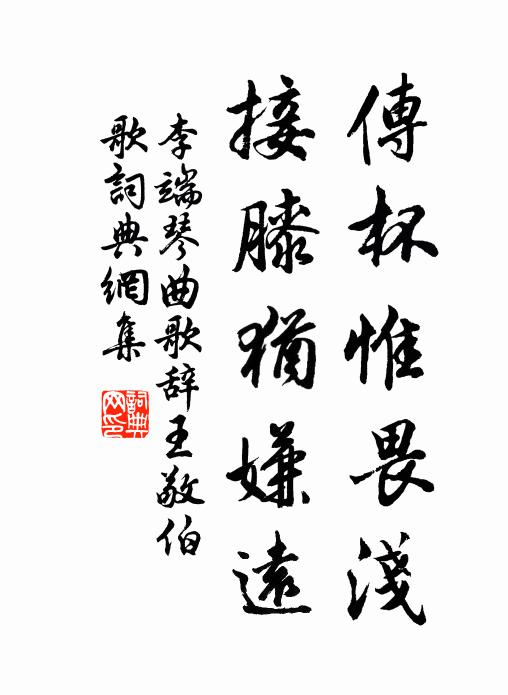 傳杯惟畏淺
接膝猶嫌遠
李端琴曲歌辞王敬伯
歌詞典網集
詞典网印